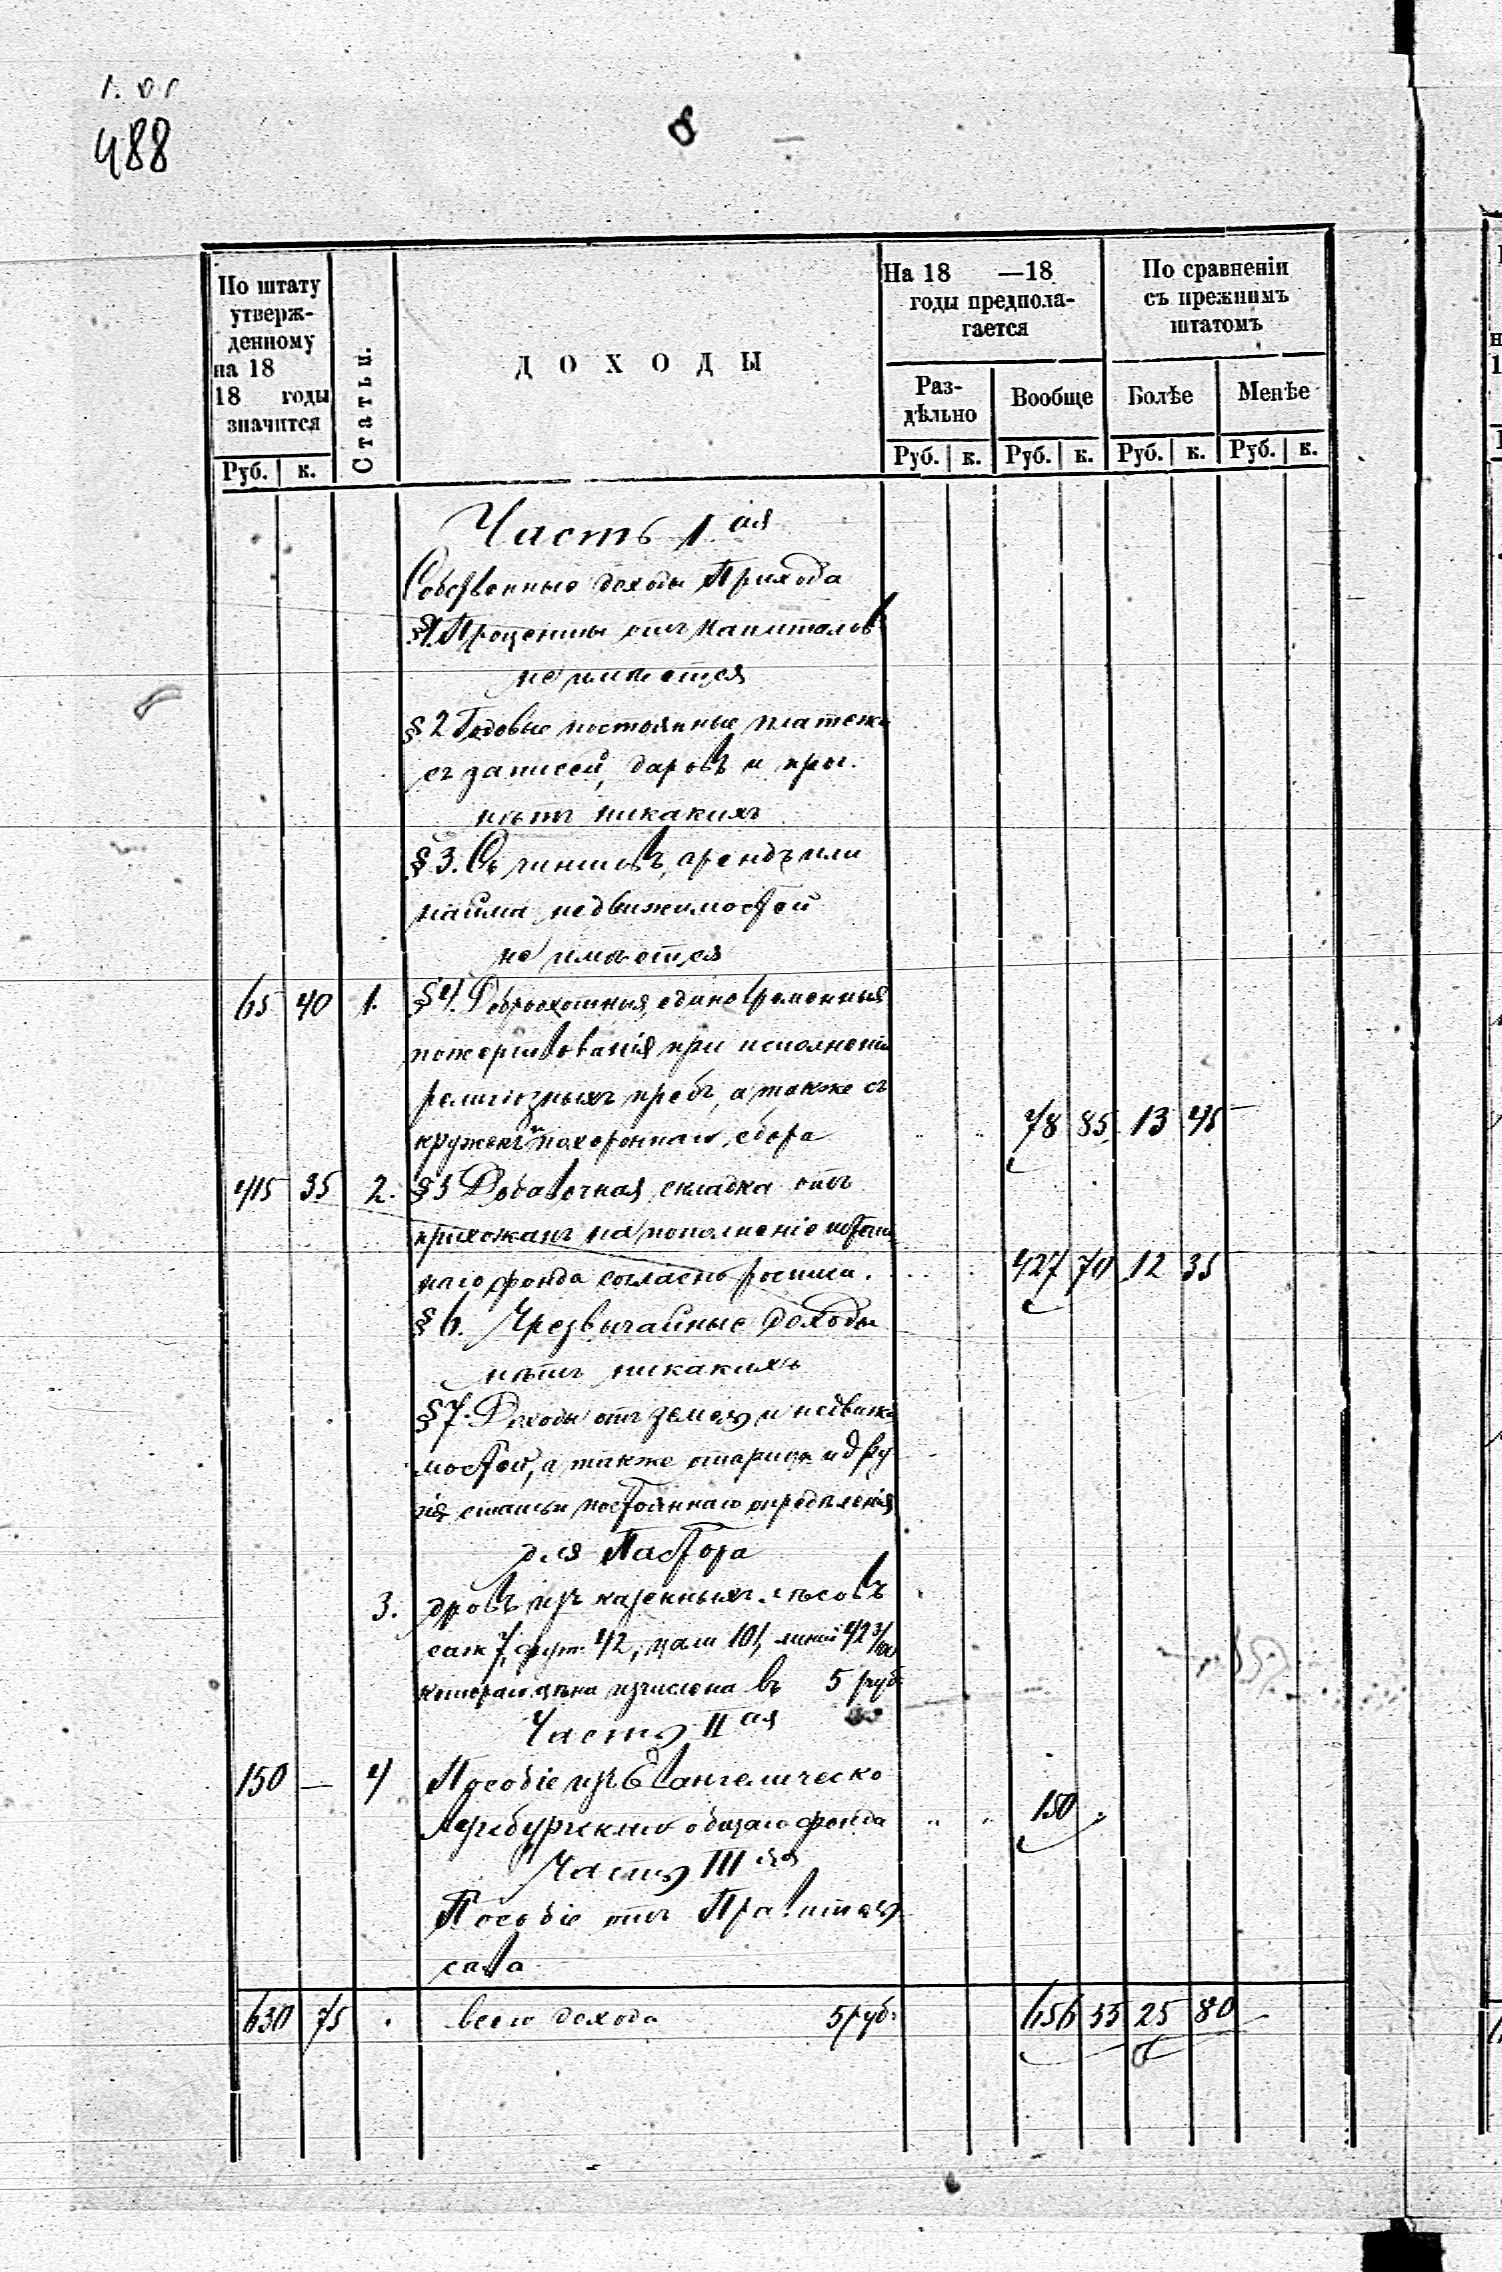 488
8
По штату утверж-
денному
на 18
18 годы
значится
Руб. к.
Статьи.
ДОХОДЫ
На 18 —18
годы предпола-
гается
Раз-
дѣльно
Вообще
Руб. к. Руб. к.
По сравненіи
съ прежнимъ
штатомъ
Болѣе
Менѣе
Руб. к. Руб. к.
Часть I ая
Собственные доходы Прихода
§1. Проценты отъ капиталовъ
не имѣется
§ 2 Годовые постоянные платежи
съ записей, даровъ и проч.
нѣтъ никакихъ
§ 3. Съ чиншовъ, арендъ или
найма недвижимостей
не имѣется
65 40 1. §4. Доброхотныя, единовременныя
пожертвованія при исполненіи
религіозныхъ требъ, а также съ
кружекъ и похороннаго сбора 78 85 13 45
415 35 2. §5 Добавочная складка отъ
прихожанъ на пополненіе штат
наго фонда согласно росписи. 427 70 12 35
§ 6. Чрезвычайные доходы
нѣтъ никакихъ
§ 7. Доходы отъ земель и недвижи
мостей, а также и дру
гія статьи постояннаго опредѣленія
для Пастора
3. дровъ изъ казенныхъ лѣсовъ
саж 7, фут. 42, цали 101, линій 42
котораго цѣна изчислена въ 5 руб
Часть II ая
150 — 4 Пособіе изъ Евангелическо
Аугсбургскаго общаго фонда 150
Часть III ая
Пособіе отъ Правитель
ства
630 75 всего дохода 5 руб. 656 55 25 80